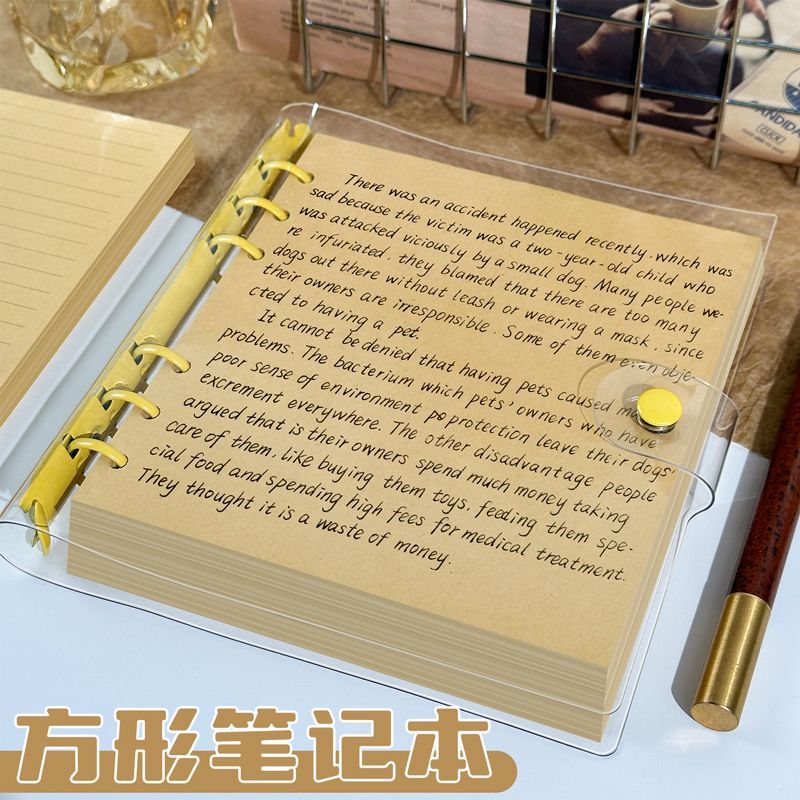 There was an accident happened recently, which was
sad because the victim was a two-year-old child who
was attacked viciously by a small dog. Many people we-
re infuriated, they blamed that there are too many
dogs out there without leash or wearing a mask, since
their owners are irresponsible. Some of them even obje-
cted to having a pet.
It cannot be denied that having pets caused
problems. The bacterium which pets' owners who have
poor sense of environment po protection leave their dogs'
excrement everywhere. The other disadvantage people
argued that is their owners spend much money taking
care of them, like buying them toys, feeding them spe-
cial food and spending high fees for medical treatment.
They thought it is a waste of money.
CLICK
方形笔记本